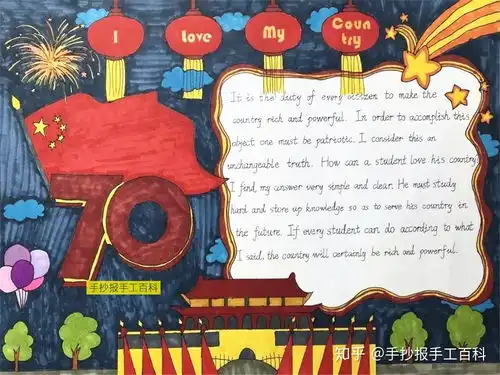 I
Love
My
Coun
try
It is the duty of every citizen to make the
country rich and powerful. In order to accomplish this
object one must be patriotic. I consider this an
unchangeable truth. How can a student love his country
I find my answer very simple and clear. He must study
hard and store up knowledge so as to serve his country in
the future. If every student can do according to what
I said, the country will certainly be rich and powerful.
70
手抄报手工百科
知乎 @手抄报手工百科